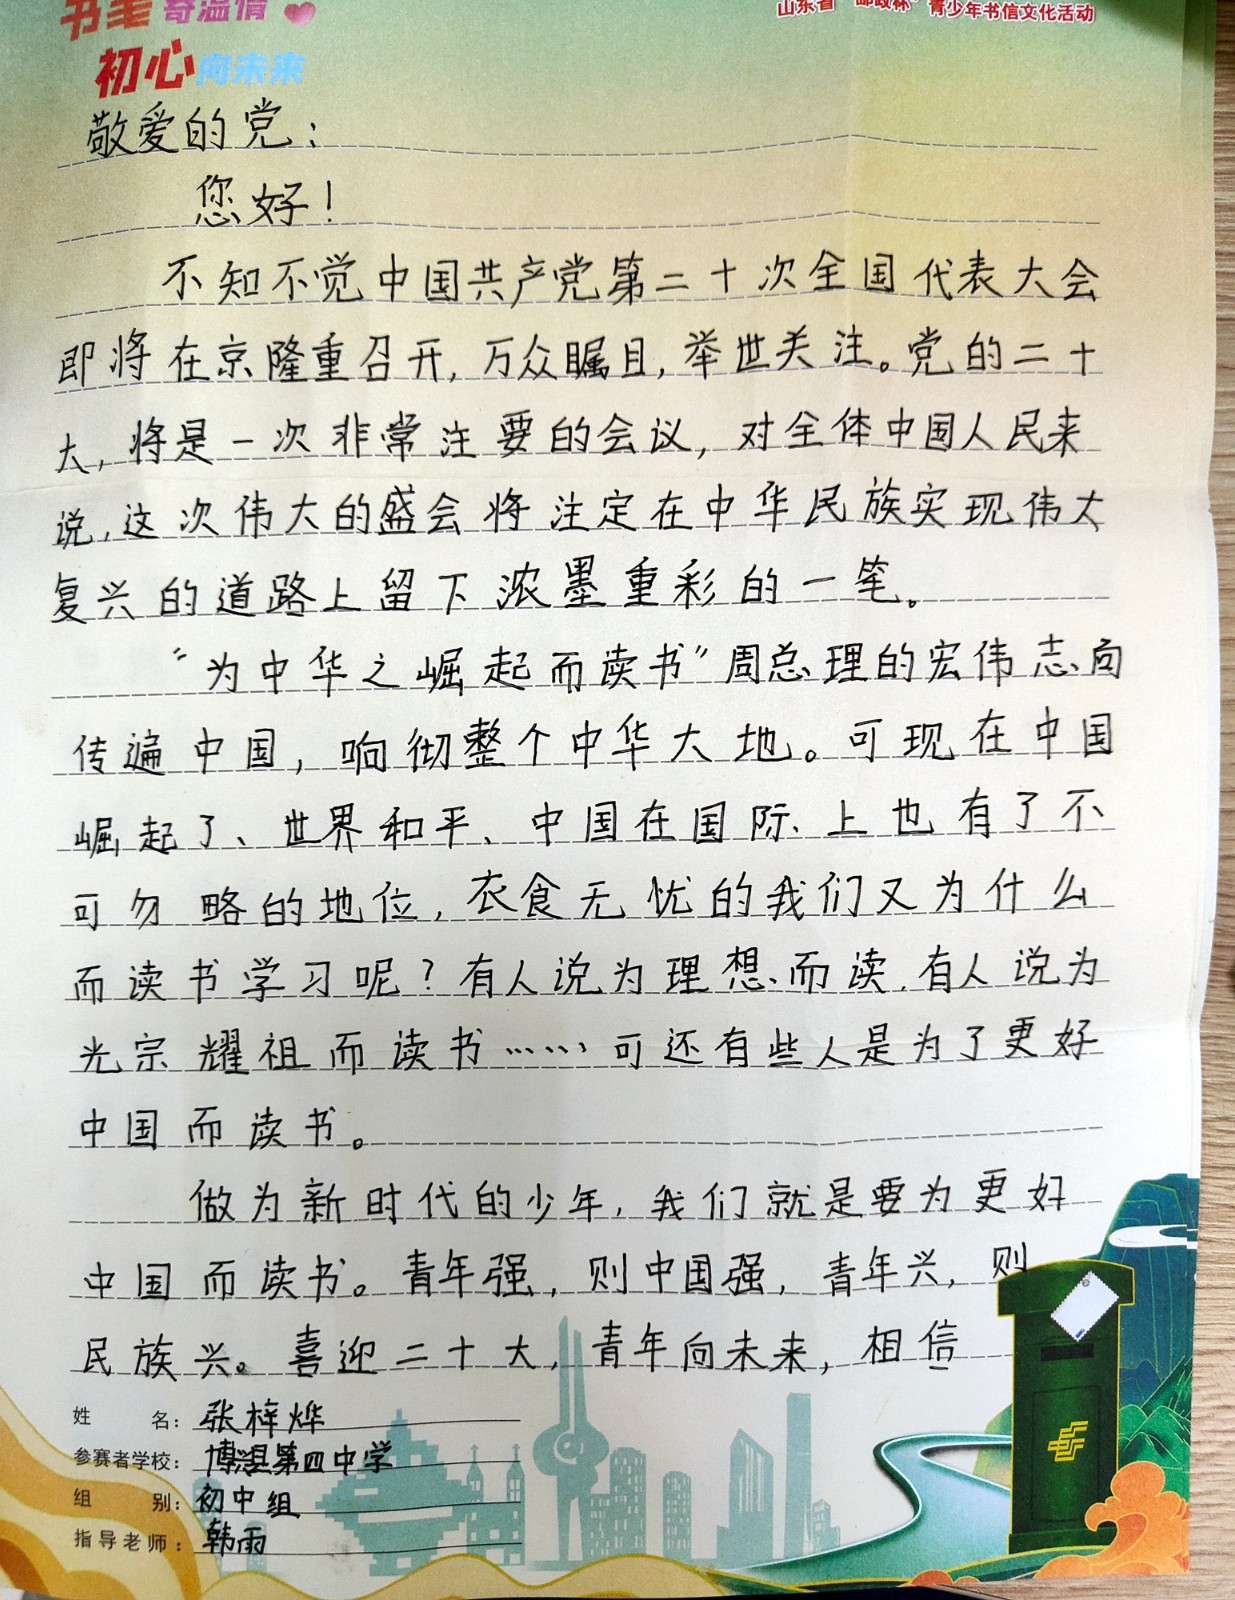 书笔寄温情
山东省"邮政杯"青少年书信文化活动
初心向未来
敬爱的党：
您好！
不知不觉中国共产党第二十次全国代表大会
即将在京隆重召开，万众瞩目，举世关注。党的二十
大，将是一次非常注要的会议，对全体中国人民来
说，这次伟大的盛会将注定在中华民族实现伟大
复兴的道路上留下浓墨重彩的一笔。
"为中华之崛起而读书"周总理的宏伟志向
传遍中国，响彻整个中华大地。可现在中国
崛起了、世界和平、中国在国际、上也有了不
可勿略的地位，衣食无忧的我们又为什么
而读书学习呢？有人说为理想而读，有人说为
光宗耀祖而读书……可还有些人是为了更好
中国而读书。
做为新时代的少年，我们就是要为更好
中国而读书。青年强，则中国强，青年兴，则
民族兴。喜迎二十大，青年向未来，相信
姓名：张梓烨
参赛者学校：博兴县第四中学
组别：初中组
指导老师：韩雨